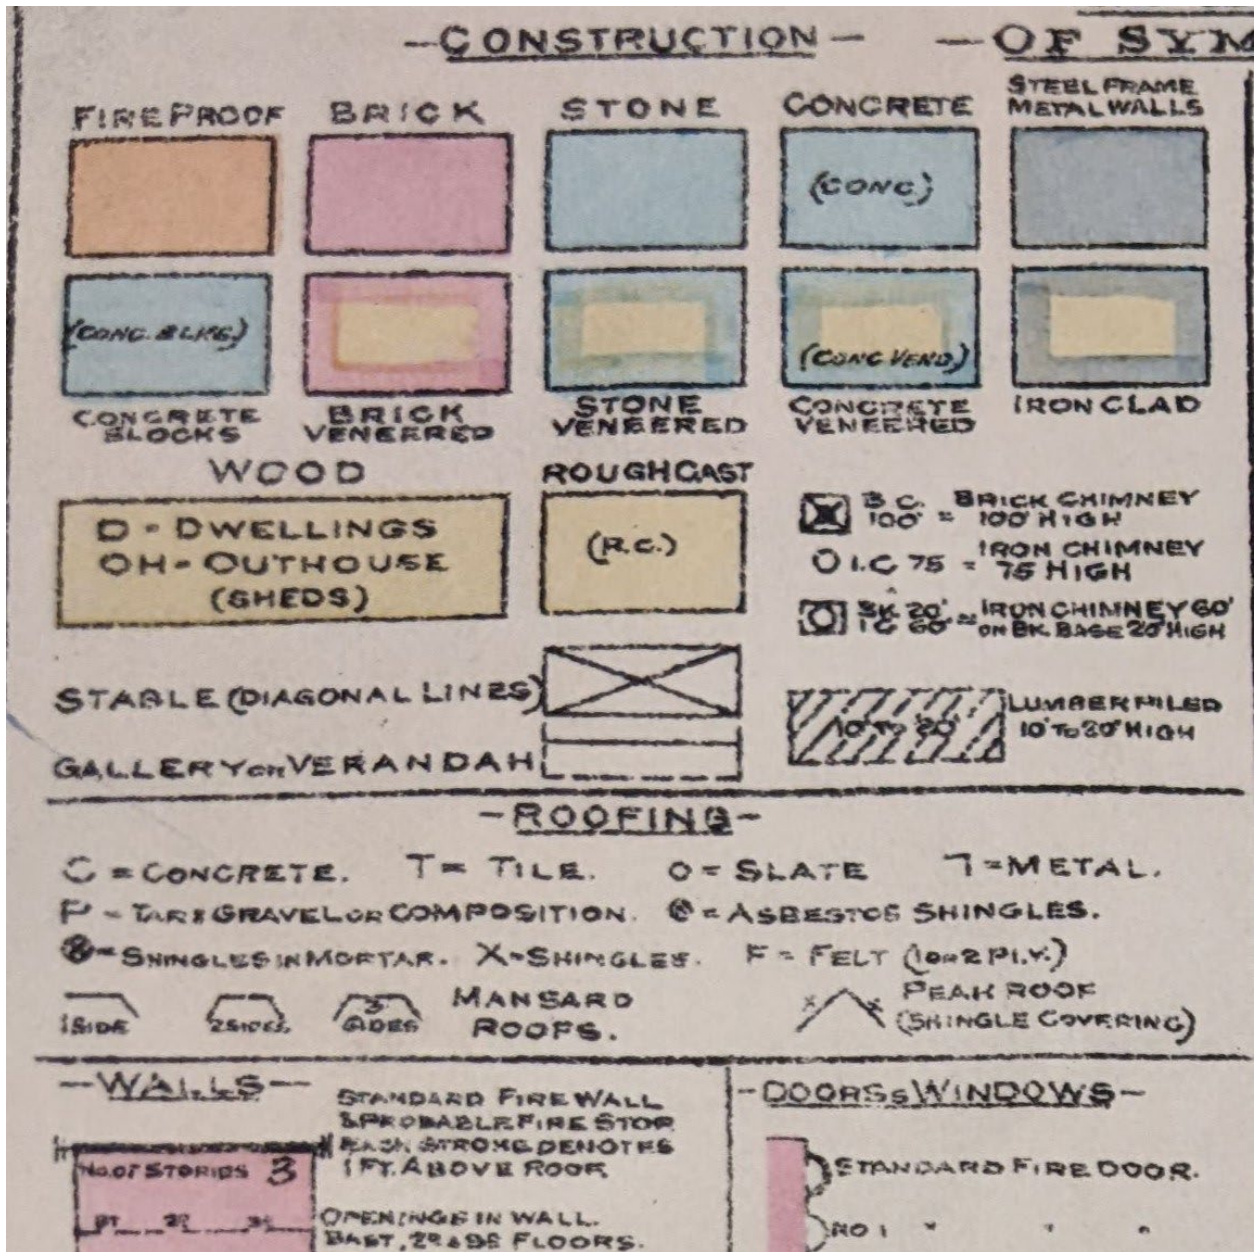 -CONSTRUCTION-
-OF SYM
FIREPROOF
BRICK
STONE
CONCRETE
STEEL FRAME
METAL WALLS
(CONC.)
(CONC. BLKS.)
(CONC VEND)
CONCRETE
BLOCKS
BRICK
VENEERED
STONE
VENEERED
CONCRETE
VENEERED
IRON CLAD
WOOD
ROUGHCAST
D - DWELLINGS
OH - OUTHOUSE
(SHEDS)
(R.C.)
B.C. BRICK CHIMNEY
100' = 100' HIGH
I.C 75 = IRON CHIMNEY
75 HIGH
BK 20' = IRON CHIMNEY 60'
I C 60' ON BK. BASE 20' HIGH
STABLE (DIAGONAL LINES)
10' TO 20'
LUMBER PILED
10' TO 20' HIGH
GALLERY OR VERANDAH
-ROOFING-
C = CONCRETE. T = TILE. O = SLATE = METAL.
P - TAR & GRAVEL OR COMPOSITION. = ASBESTOS SHINGLES.
= SHINGLES IN MORTAR. X - SHINGLES. F = FELT (1 OR 2 PLY.)
1 SIDE
2 SIDES
3
SIDES
MANSARD
ROOFS.
PEAK ROOF
(SHINGLE COVERING)
-WALLS-
STANDARD FIRE WALL
& PROBABLE FIRE STOP
EACH STROKE DENOTES
1 FT. ABOVE ROOF
NO. OF STORIES 3
OPENINGS IN WALL.
-DOORS & WINDOWS-
STANDARD FIRE DOOR.
NO 1 " " "